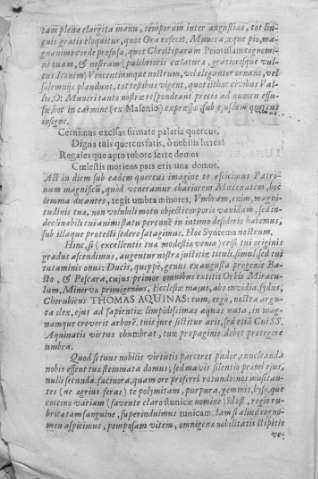 tam plena elargita manu, temporum inter angustias, tot lin-
guis gratis eloquitur, quot Ora refecit, Munera, æquè pio, mag-
nanimo corde profusa, quot Christiparam
ni tuam, & nostram
tus Icenim Vincentiumque nostrum, vel eleganter ornans, vel
solemnius plaudunt, tot testibus vigent, quot tibus crebras Val-
lis. O Muneri tanto nostræ respondeant preces ad numen effu-
sæ, hoc in carmine (ex Malonio) expensa sub ejusdem quercus
insigne.
Cernimus excelsas firmate palatia quercus.
Digna tuis quercus fatis, ô nobilis hæres!
Regales que apto robore ferte domos
Cœlestis moriens pars eris una domus.
Ast in diem sub eadem quercus imagine te asciscimus Patro-
num magnificum, quòd veneramur chariorem Mœcenatem, hoc
lemma dicantes, tegit umbra minores, Umbram, enim, magni-
tudinis tua, non volubili motu objecti corporis vanidam, sed in-
declinabili tui animi statu perennè in intenta defendente habemus,
sub illaque protecti sedere satagimus. Hoc Syntema nostrum.
Hinc, si (excellentis tua modestia venia) celsi tui originis
gradus ascendimus, augentur nostra justitiæ tituli, simul, sed tui
tutaminis onus: Ducis, quippè, genus ex augusta progenie Ba-
sto, & Pescara, cujus primor omnibus extitit Orbis Miracu-
lum, Minerva primigenius, Ecclesiæ magus, abs invidia, sydus,
Cherubicus THOMAS AQUINAS: tum, ergò, nostra argu-
ta alex, ejus ad sapientia limpidissimas aquas nata, in mag-
namque creverit arborē. tuis jure sistitur aris, sed etiã Cui SS.
Aquinatis virtus obumbrat, tum propaginis debet protegere
umbra.
Quod si tuus nobilis virtutis parceret pudor, nuclœanda
nobis essent tua stemmata domus, sed mavis silentio premi ejus,
nulli secunda facinora, quam ore proferri rotundo: nos mussitan-
tes (ne agrius feras) te polymitam, purpura, gemmis, bysso, que
coccino variam (savente claro tunicæ nomine) idest, regio ru-
bricatam sanguine, superinduimus tunicam. Jam si aliud cogno-
men aspicimus, pomposam vitem, omnigena nobilitatis stipitis
ve-